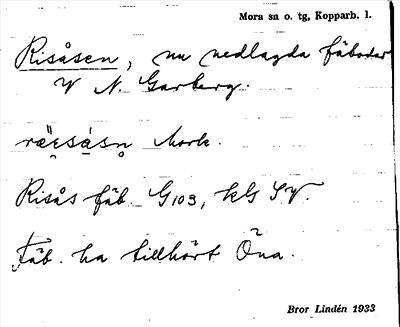 Mora sn o. tg, Kopparb. l.
Risåsen, nu nedlagda fäbodar
V N. Garberg.
Mork.
Risås fäb. G103, kls SV.
Fäb. ha tillhört Öna.
Bror Lindén 1933